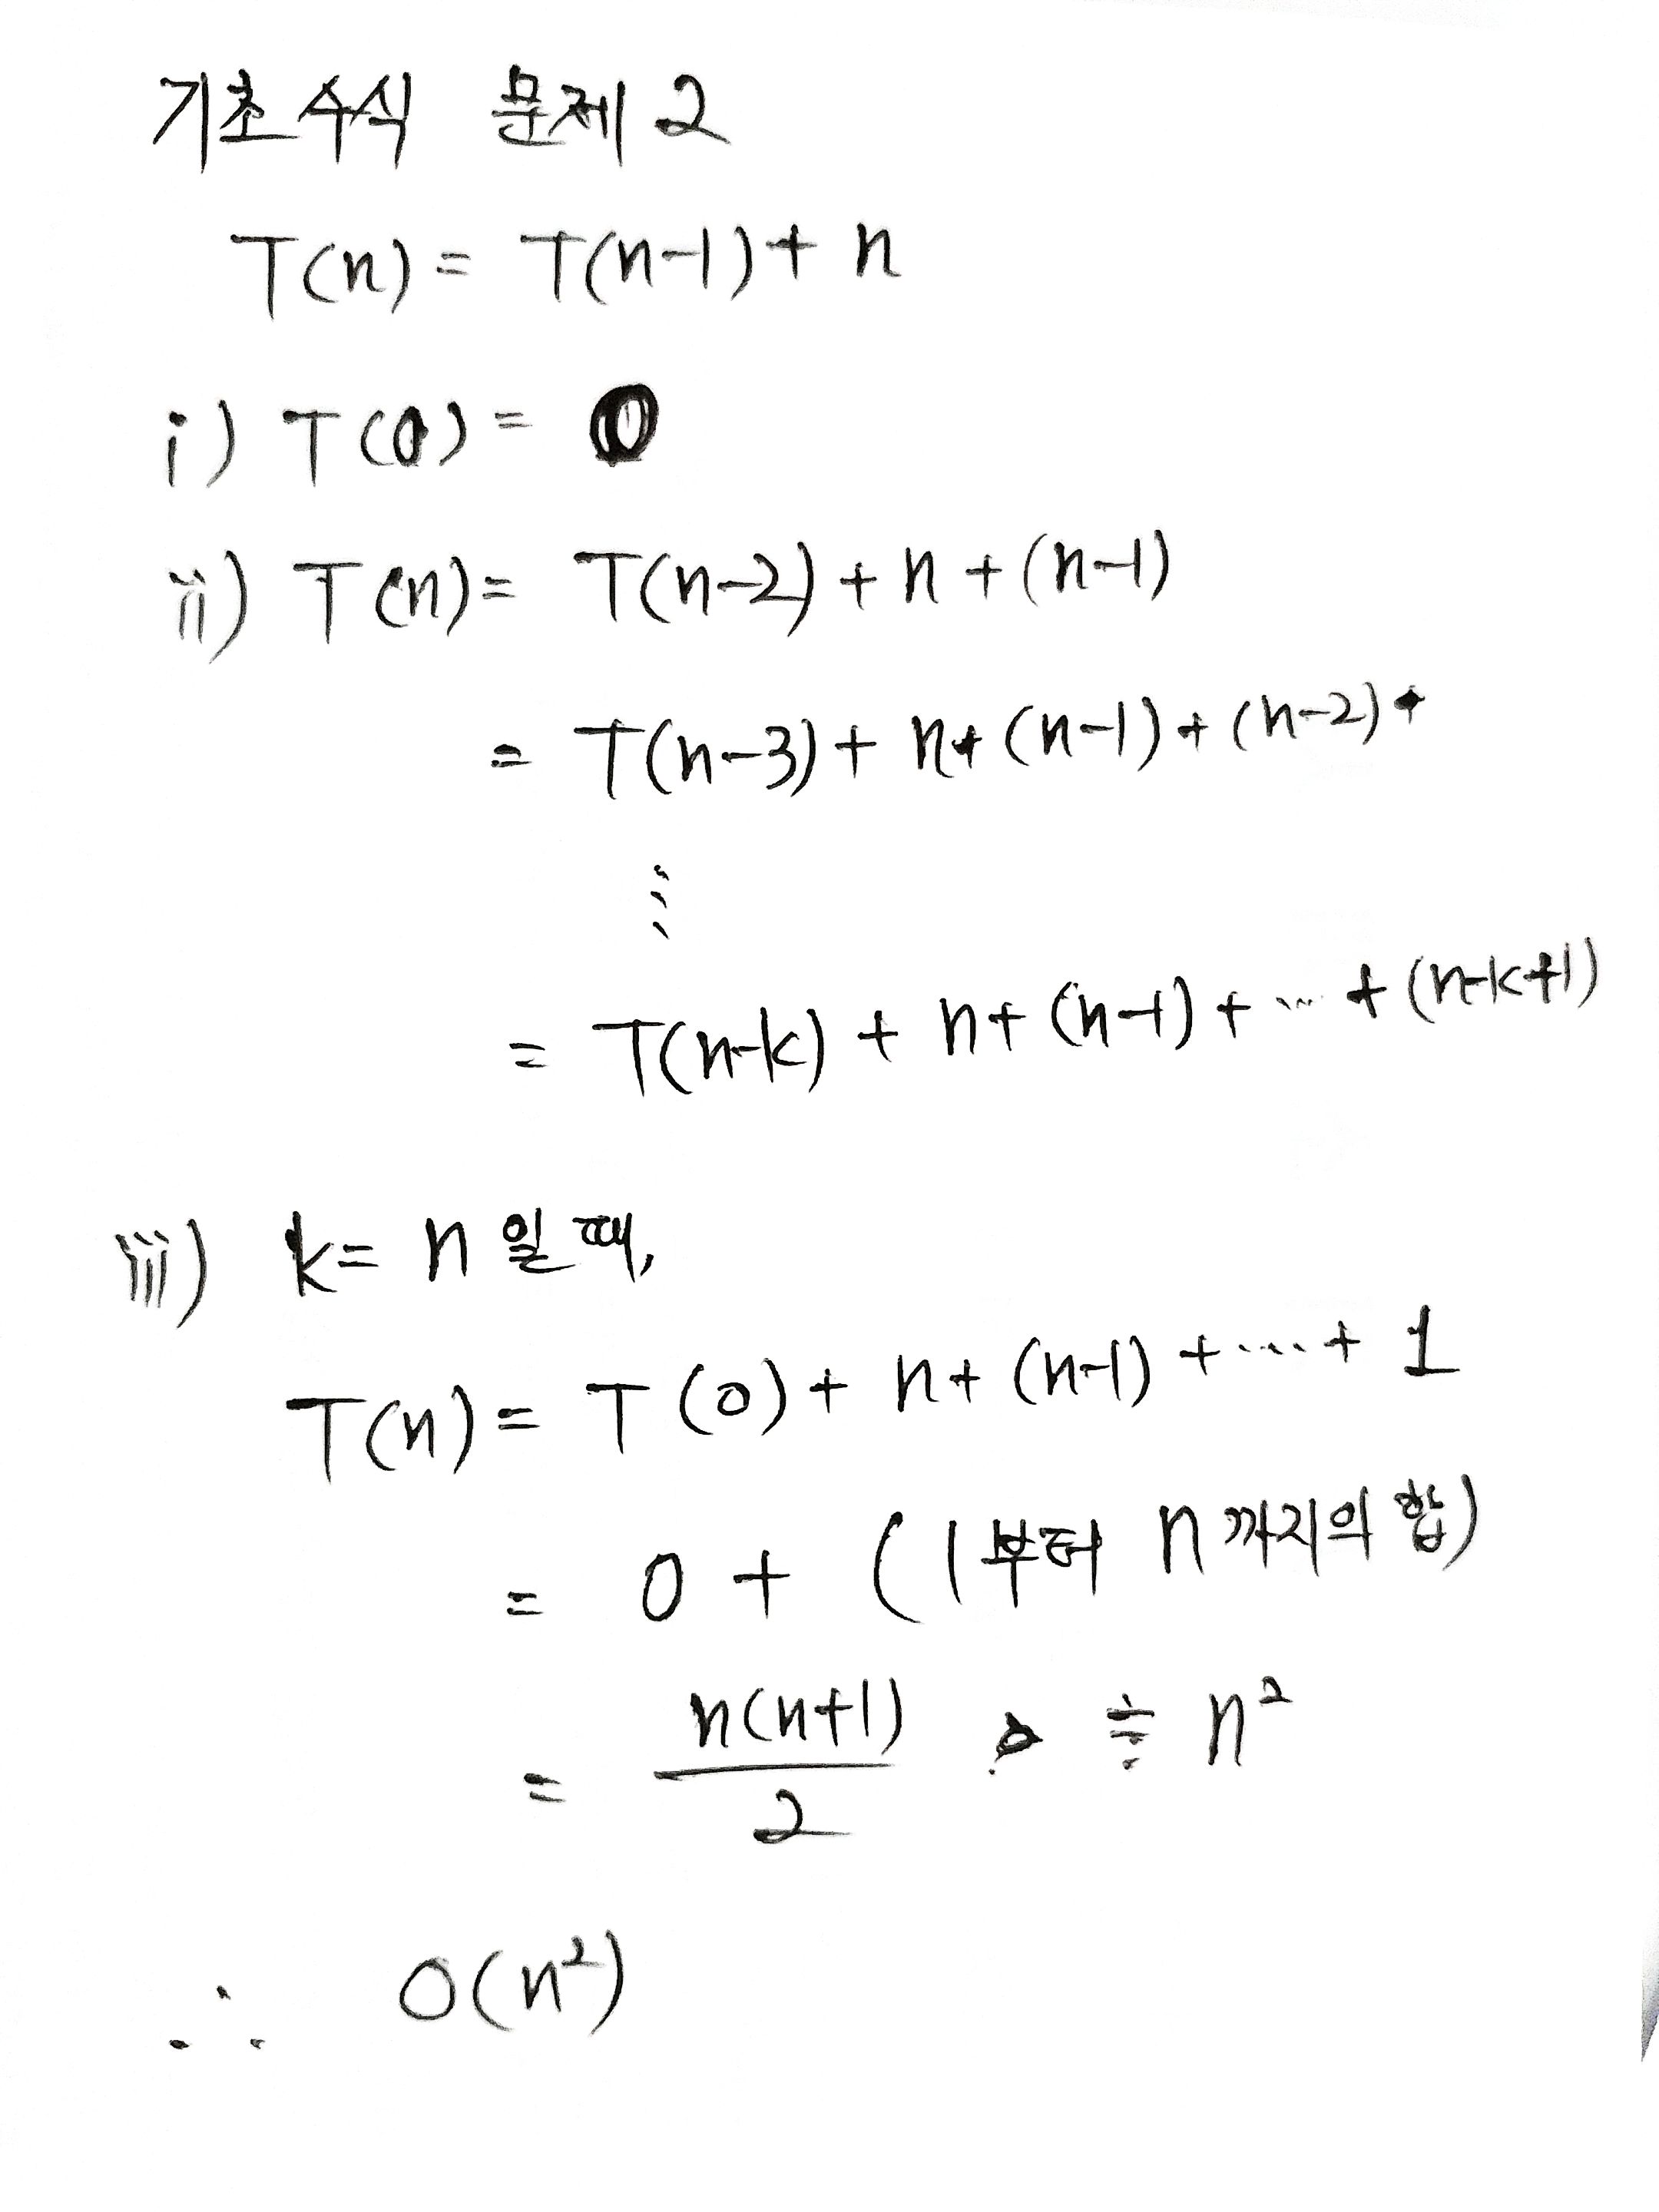 기초수식 문제 2
T(n) = T(n-1) + n
i) T(0) = 0
ii) T(n) = T(n-2) + n + (n-1)
= T(n-3) + n + (n-1) + (n-2) +
⋮
= T(n-k) + n + (n-1) + ... + (n-k+1)
iii) k = n 일 때,
T(n) = T(0) + n + (n-1) + .... + 1
= 0 + (1부터 n까지의 합)
= n(n+1)/2 ≒ n²
∴ O(n²)